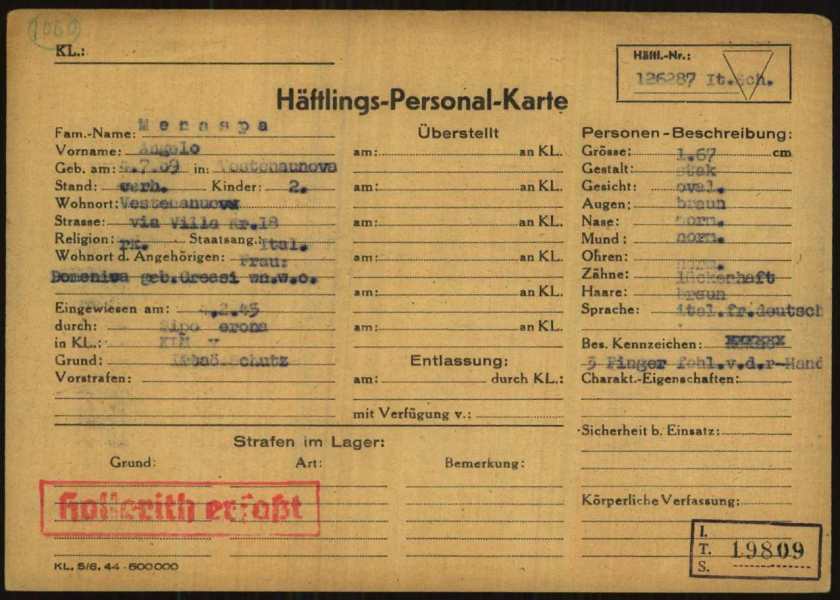 1060
KL.:
Häftl.-Nr.:
126287 It.Sch.
Häftlings-Personal-Karte
Fam.-Name: Menaspa
Vorname: Angelo
Geb. am: .7.09 in: Vestenaunova
Stand: verh. Kinder: 2.
Wohnort: Vestenanuova
Strasse: via Villa Nr.18
Religion: rk. Staatsang.: Ital.
Wohnort d. Angehörigen: Frau:
Domenica geb. wn.w.o.
Eingewiesen am: .2.45
durch: Sipo Verona
in KL.: KLM
Grund: Schutz
Vorstrafen:
Überstellt
am: an KL.
am: an KL.
am: an KL.
am: an KL.
am: an KL.
am: an KL.
Entlassung:
am: durch KL.:
mit Verfügung v.:
Personen-Beschreibung:
Grösse: 1.67 cm
Gestalt: stak
Gesicht: oval.
Augen: braun
Nase: norm.
Mund: norm.
Ohren: norm.
Zähne: lückenhaft
Haare: braun
Sprache: ital.fr.deutsch
Bes. Kennzeichen: xxxxxx
3 Finger fehl.v.d.r-Hand
Charakt.-Eigenschaften:
Sicherheit b. Einsatz:
Körperliche Verfassung:
Strafen im Lager:
Grund: Art: Bemerkung:
Hollerith erfaßt
I.
T. 19809
S.
KL. 5/6. 44 - 500 000